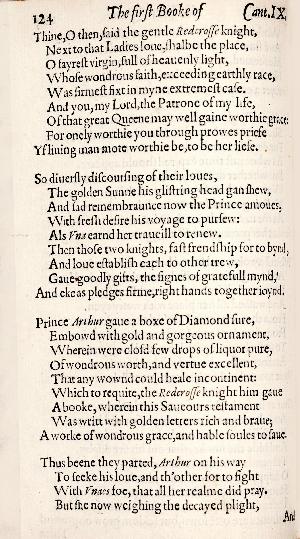 124 The first Booke of Cant. IX.
Thine, O then, said the gentle Redcrosse knight,
Next to that Ladies loue, shalbe the place,
O fayrest virgin, full of heauenly light,
Whose wondrous faith, exceeding earthly race,
Was firmest fixt in myne extremest case.
And you, my Lord, the Patrone of my life,
Of that great Queene may well gaine worthie grace:
For onely worthie you through prowes priefe
Yf liuing man mote worthie be, to be her liefe.
So diuersly discoursing of their loues,
The golden Sunne his glistring head gan shew,
And sad remembraunce now the Prince amoues,
With fresh desire his voyage to pursew:
Als Vna earnd her traueill to renew.
Then those two knights, fast frendship for to bynd,
And loue establish each to other trew,
Gaue goodly gifts, the signes of gratefull mynd,
And eke as pledges firme, right hands together ioynd.
Prince Arthur gaue a boxe of Diamond sure,
Embowd with gold and gorgeous ornament,
Wherein were closd few drops of liquor pure,
Of wondrous worth, and vertue excellent,
That any wownd could heale incontinent:
Which to requite, the Redcrosse knight him gaue
A booke, wherein this Saueours testament
Was writt with golden letters rich and braue;
A worke of wondrous grace, and hable soules to saue.
Thus beene they parted, Arthur on his way
To seeke his loue, and th'other for to fight
With Vnaes foe, that all her realme did pray.
But she now weighing the decayed plight,
And